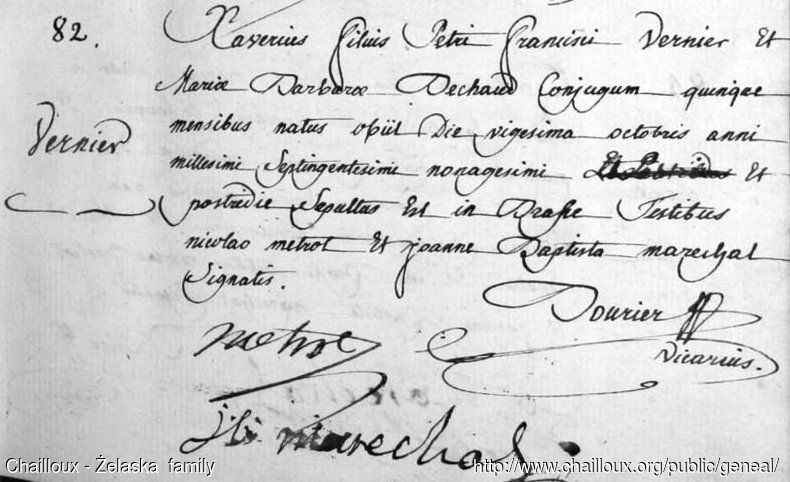 82.
Xaverius filius Petri francisci Vernier Et
Mariæ Barbaræ Dechaud Conjugum quinque
Vernier
mensibus natus obiit Die vigesima octobris anni
millesimi Septingentesimi nonagesimi Et
postredie Sepultus Est in Testibus
nicolao metrot Et joanne Baptista marechal
Signatis.
Dourier
Vicarius.
metrot
j b marechal
Chailloux - Żelaska family
http://www.chailloux.org/public/geneal/